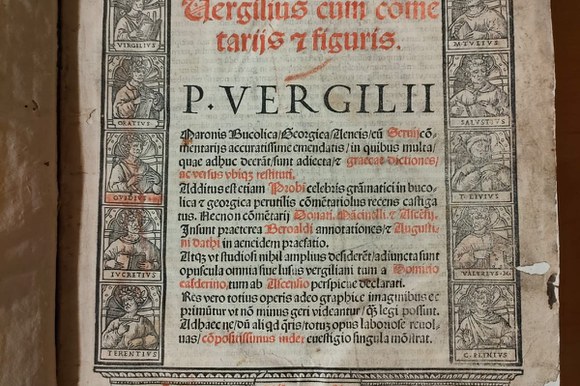 Vergilius cum cōme
tarijs ⁊ figuris.
P. VERGILII
Maronis Bucolica/Georgica/Aeneis/cū Seruij cō-
mentarijs accuratissime emendatis/in quibus multa/
quae adhuc deerāt/sunt adiecta/⁊ graecae dictiones/
ac versus vbiqƺ restituti.
Additus est etiam Probi celebris grāmatici in buco-
lica ⁊ georgica perutilis cōmētariolus recens castiga
tus. Necnon cōmētarij Donati. Mācinelli. ⁊ Ascēsij.
Insunt praeterea Beroaldi annotationes/⁊ Augusti-
ni dathi in aeneidem praefatio.
Atqƺ vt studiosi nihil amplius desiderēt/adiuncta sunt
opuscula omnia siue lusus vergiliani tum a Domitio
calderino/tum ab Ascensio perspicue declarati.
Res vero totius operis adeo graphice imaginibus ex
primūtur vt nō minus geri videantur/ ꝙƺ legi possunt.
Adhaec ne/dū aliqd q̄ris/totuƺ opus laboriose reuol-
uas/cōpositissimus index euestigio singula mōstrat.
VIRGILIVS
ORATIVS
OVIDIVS
LVCRETIVS
TERENTIVS
M. TVLIVS
SALVSTIVS
T. LIVIVS
VALERIVS. M.
C. PLYNIVS